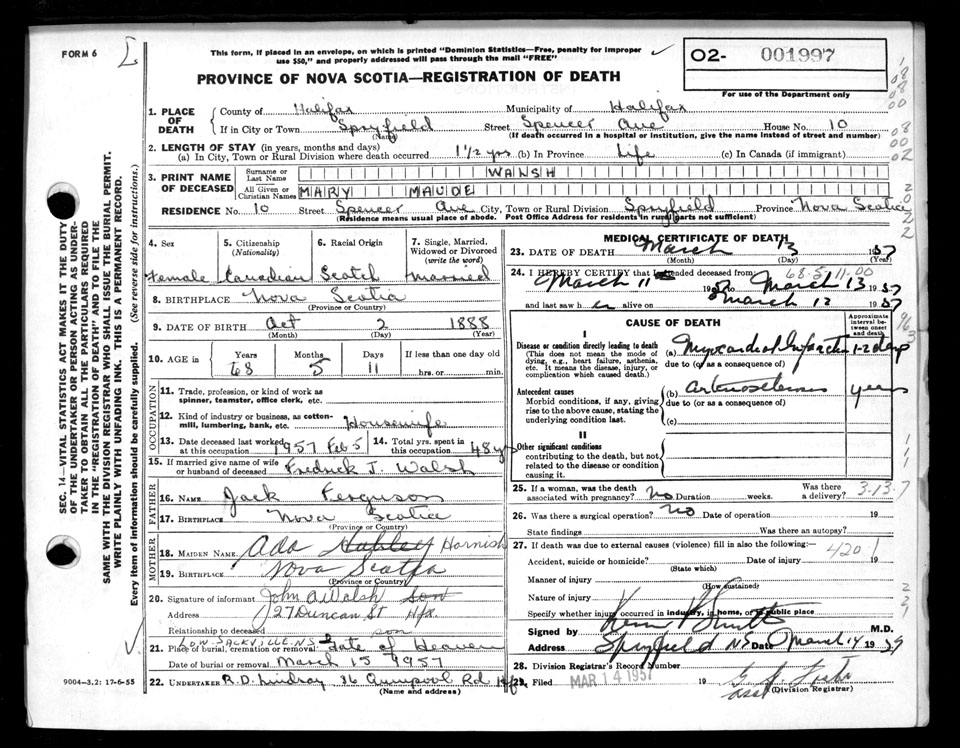 FORM 6
This form, if placed in an envelope, on which is printed "Dominion Statistics—Free, penalty for improper
use $50," and properly addressed will pass through the mail "FREE"
O2- 001997
For use of the Department only
PROVINCE OF NOVA SCOTIA—REGISTRATION OF DEATH
1. PLACE OF DEATH
County of Halifax Municipality of Halifax
If in City or Town Spryfield Street Spencer Ave House No. 10
(Name) (If death occurred in a hospital or institution, give the name instead of street and number)
2. LENGTH OF STAY (in years, months and days)
(a) In City, Town or Rural Division where death occurred 11½ yrs (b) In Province Life (c) In Canada (if immigrant)
3. PRINT NAME OF DECEASED
Surname or Last Name WALSH
All Given or Christian Names MARY MAUDE
RESIDENCE No. 10 Street Spencer Ave City, Town or Rural Division Spryfield Province Nova Scotia
(Residence means usual place of abode. Post Office Address for residents in rural parts not sufficient)
4. Sex
Female
5. Citizenship (Nationality)
Canadian
6. Racial Origin
Scotch
7. Single, Married, Widowed or Divorced (write the word)
Married
8. BIRTHPLACE Nova Scotia
(Province or Country)
9. DATE OF BIRTH Oct 2 1888
(Month) (Day) (Year)
10. AGE in Years Months Days If less than one day old
68 5 11 hrs. or min.
OCCUPATION
11. Trade, profession, or kind of work as spinner, teamster, office clerk, etc.
12. Kind of industry or business, as cotton-mill, lumbering, bank, etc. Housewife
13. Date deceased last worked at this occupation 1957 Feb 5
14. Total yrs. spent in this occupation 48 yrs
15. If married give name of wife or husband of deceased Fredrick J. Walsh
FATHER
16. NAME Jack Ferguson
17. BIRTHPLACE Nova Scotia
(Province or Country)
MOTHER
18. MAIDEN NAME Ada Harnish
19. BIRTHPLACE Nova Scotia
(Province or Country)
20. Signature of informant John A Walsh Son
Address 27 Duncan St Hfx.
Relationship to deceased son
LOW. SACKVILLE. N.S
21. Place of burial, cremation or removal Gate of Heaven
Date of burial or removal March 15 1957
22. UNDERTAKER R.D. Lindsay 36 Quinpool Rd Hfx
(Name and address)
9004—3.2: 17-6-55
MEDICAL CERTIFICATE OF DEATH
23. DATE OF DEATH March 13 1957
(Month) (Day)
68-5-11-00
24. I HEREBY CERTIFY that I attended deceased from:
March 11 1957 to March 13 1957
and last saw her alive on March 12 1957
CAUSE OF DEATH
Approximate interval between onset and death
I
Disease or condition directly leading to death
(This does not mean the mode of dying, e.g., heart failure, asthenia, etc. It means the disease, injury, or complication which caused death.)
(a) Myocardial Infarction 1-2 days
due to (or as a consequence of)
Antecedent causes
Morbid conditions, if any, giving rise to the above cause, stating the underlying condition last.
(b) Arteriosclerosis years
due to (or as a consequence of)
(c)
II
Other significant conditions
contributing to the death, but not related to the disease or condition causing it.
25. If a woman, was the death associated with pregnancy? No Duration weeks. Was there a delivery?
3-13-7
26. Was there a surgical operation? No Date of operation 19
State findings Was there an autopsy?
27. If death was due to external causes (violence) fill in also the following:—
420 1
Accident, suicide or homicide? Date of injury 19
(State which)
Manner of injury
(How sustained)
Nature of injury
Specify whether injury occurred in industry, in home, or in public place
Signed by M.D.
Spryfield N.S. Date March 14 1957
28. Division Registrar's Record Number
29. Filed MAR 14 1957 19
(Division Registrar)
SEC. 14—VITAL STATISTICS ACT MAKES IT THE DUTY
OF THE UNDERTAKER OR PERSON ACTING AS UNDER-
TAKER TO OBTAIN ALL THE PARTICULARS REQUIRED
IN THE "REGISTRATION OF DEATH" AND TO FILE THE
SAME WITH THE DIVISION REGISTRAR WHO SHALL ISSUE THE BURIAL PERMIT.
WRITE PLAINLY WITH UNFADING INK. THIS IS A PERMANENT RECORD.
Every item of information should be carefully supplied. (See reverse side for instructions.)